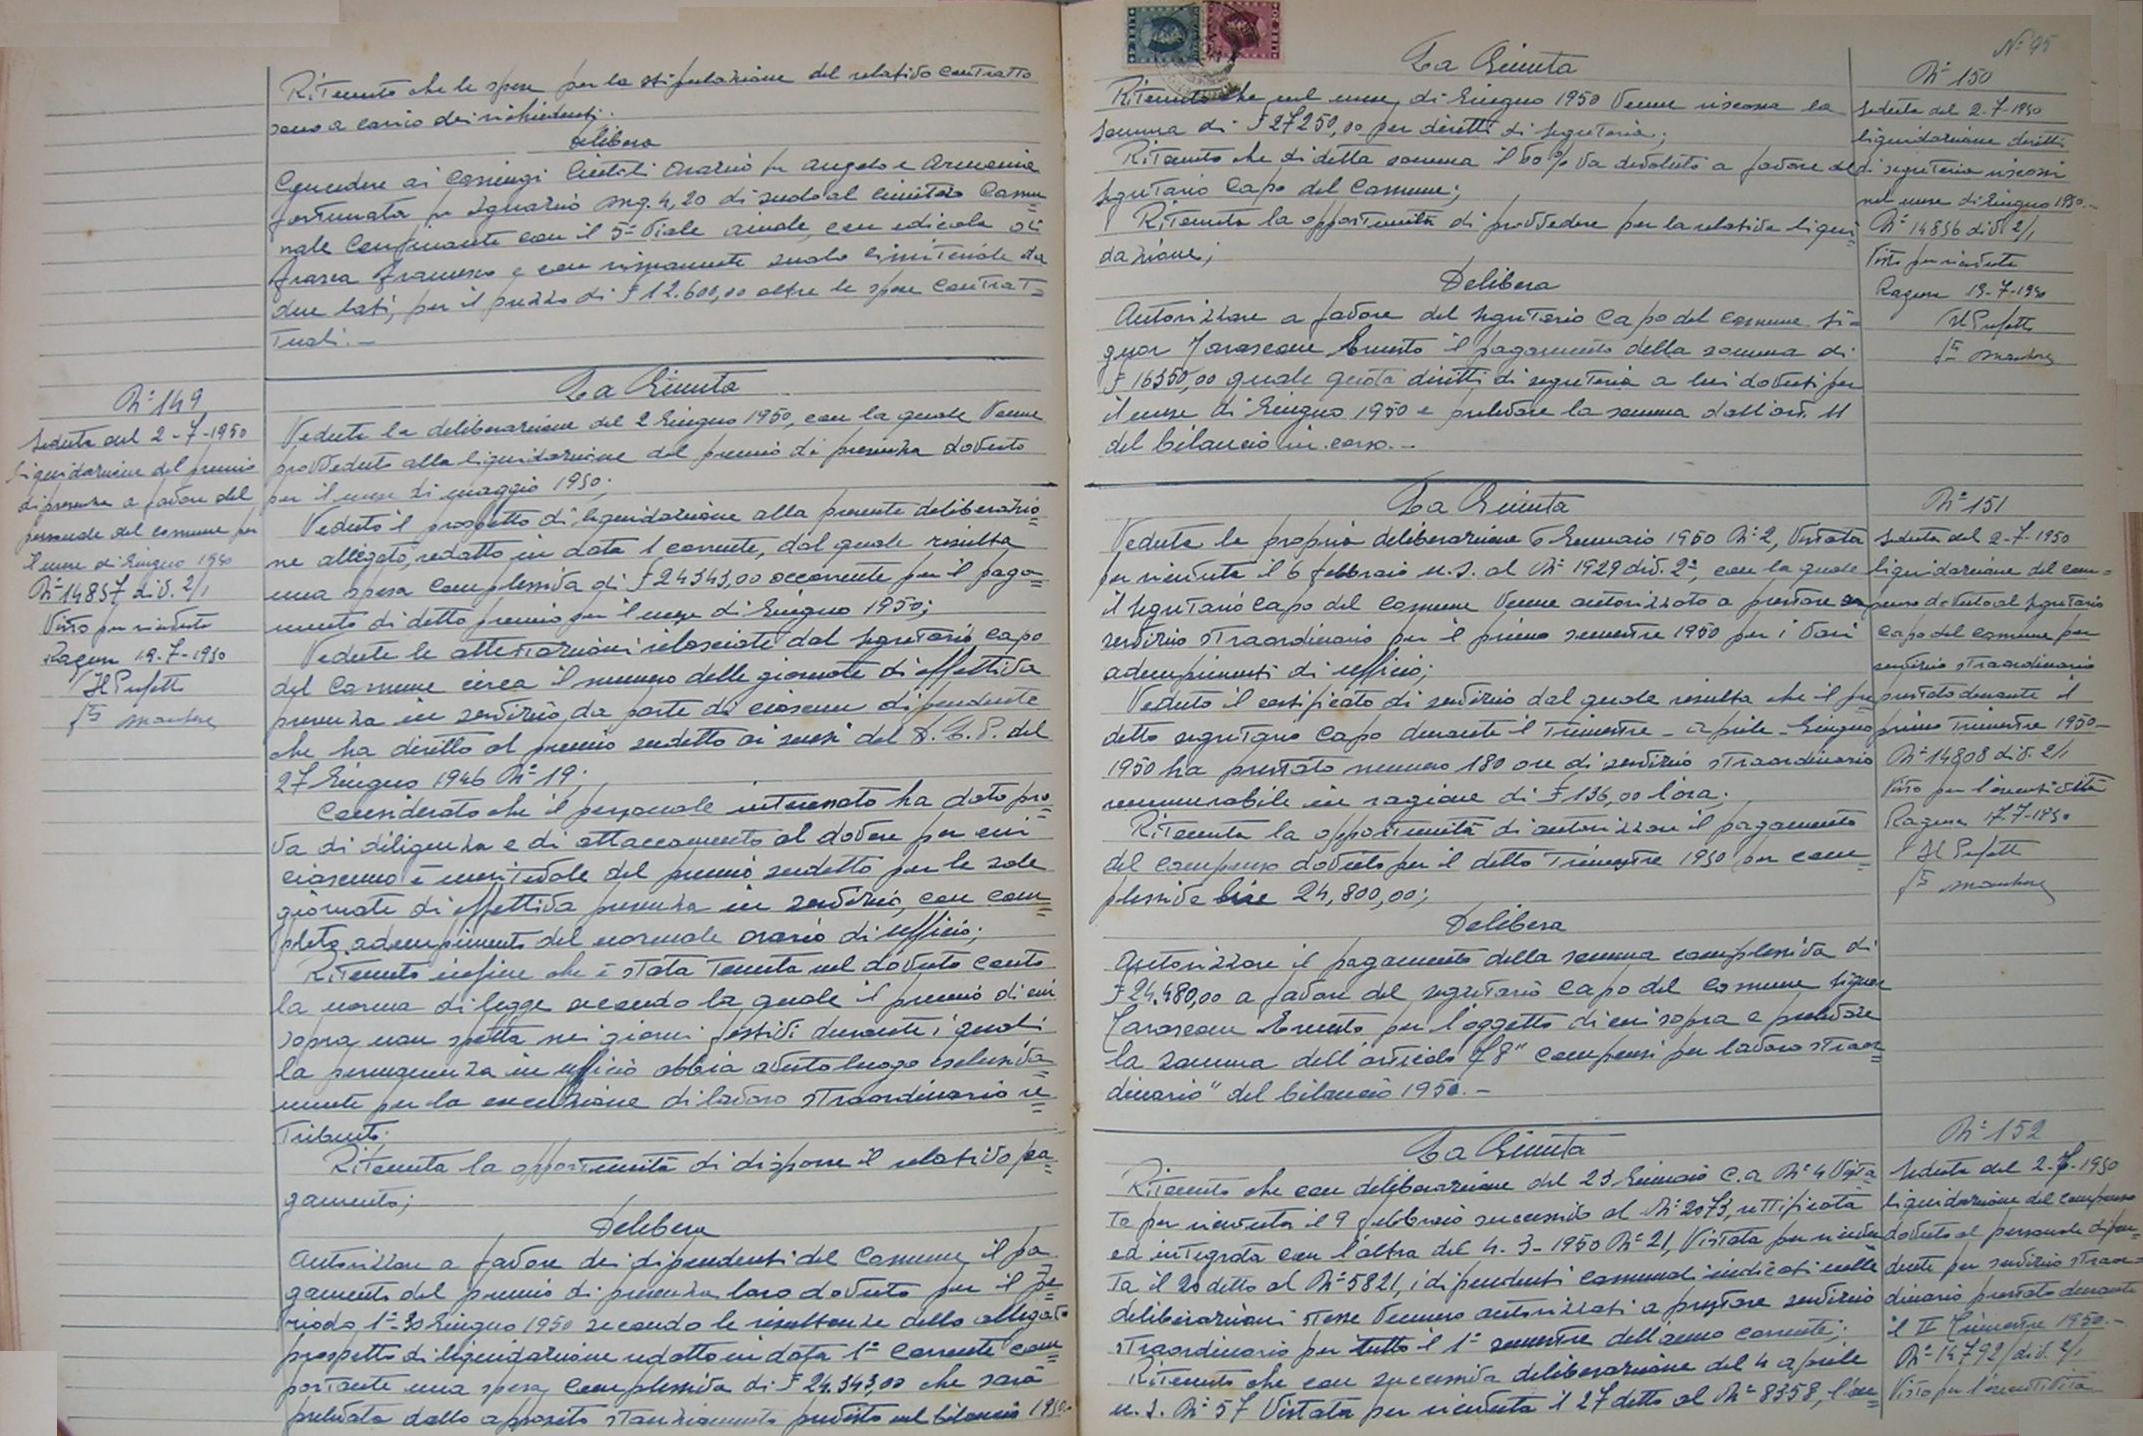 Ritenuto che le spese per la stipulazione del relativo contratto
sono a carico dei richiedenti.
Delibera
Concedere ai coniugi Orazio fu Angelo e Armenia
Fortunata fu Ignazio mq. 4,20 di suolo al cimitero Comu=
nale confinante con il 5° Viale con edicola Di
Francesco e con rimanente suolo cimiteriale da
due lati, per il prezzo di £ 12.600,00 oltre le spese contrat=
tuali.-
N° 149
Seduta del 2-7-1950
Liquidazione del premio
di presenza a favore del
personale del comune per
il mese di Giugno 1950
N° 14857 div. 2/1
Visto per ricevuta
Ragusa 19-7-1950
Il Prefetto
La Giunta
Veduta la deliberazione del 2 Giugno 1950, con la quale venne
provveduto alla liquidazione del premio di presenza dovuto
per il mese di maggio 1950;
Veduto il prospetto di liquidazione alla presente deliberazio=
ne allegato, redatto in data 1 corrente, dal quale risulta
una spesa complessiva di £ 24343,00 occorrente per il paga=
mento di detto premio per il mese di Giugno 1950;
Vedute le attestazioni rilasciate dal Segretario capo
del Comune circa il numero delle giornate di effettiva
presenza in servizio da parte di ciascun dipendente
che ha diritto al premio sudetto ai sensi del D.C.P. del
27 Giugno 1946 N° 19;
Considerato che il personale interessato ha dato pro=
va di diligenza e di attaccamento al dovere per cui
ciascuno è meritevole del premio sudetto per le sole
giornate di effettiva presenza in servizio, con com=
pleto adempimento del normale orario di ufficio;
Ritenuto infine che è stata tenuta nel dovuto conto
la norma di legge secondo la quale il premio di cui
sopra non spetta nei giorni festivi durante i quali
la permanenza in ufficio abbia avuto luogo esclusiva=
mente per la esecuzione di lavoro straordinario re=
tribuito;
Ritenuta la opportunità di disporre il relativo pa=
gamento;
Delibera
Autorizzare a favore dei dipendenti del Comune il pa=
gamento del premio di presenza loro dovuto per il pe=
riodo 1°-30 Giugno 1950 secondo le risultanze dello allegato
prospetto di liquidazione redatto in data 1° corrente com=
portante una spesa complessiva di £ 24.343,00 che sarà
prelevata dallo apposito stanziamento previsto nel bilancio 1950.-
N° 95
La Giunta
Ritenuto che nel mese di Giugno 1950 venne riscossa la
somma di £ 27250,00 per diritti di segreteria;
Ritenuto che di detta somma il 60% va devoluto a favore del
Segretario Capo del Comune;
Ritenuta la opportunità di provvedere per la relativa liqui=
dazione;
Delibera
Autorizzare a favore del Segretario Capo del comune Si=
gnor Ernesto il pagamento della somma di
£ 16350,00 quale quota diritti di segreteria a lui dovuti per
il mese di Giugno 1950 e prelevare la somma dall'art. 11
del bilancio in corso.-
N° 150
Seduta del 2-7-1950
liquidazione diritti
di segreteria riscossi
nel mese di Giugno 1950.-
N° 14856 div. 2/1
Visto per ricevuta
Ragusa 19-7-1950
Il Prefetto
La Giunta
Veduta la propria deliberazione 6 Gennaio 1950 N° 2, Vistata
per ricevuta il 6 febbraio u.s. al N° 1929 div. 2ª, con la quale
il Segretario Capo del Comune venne autorizzato a prestare
servizio straordinario per il primo semestre 1950 per i vari
adempimenti di ufficio;
Veduto il certificato di servizio dal quale risulta che il pre
detto segretario capo durante il trimestre - aprile - Giugno
1950 ha prestato numero 180 ore di servizio straordinario
remunerabile in ragione di £ 136,00 l'ora;
Ritenuta la opportunità di autorizzare il pagamento
del compenso dovuto per il detto trimestre 1950 per com=
plessive lire 24,800,00;
Delibera
Autorizzare il pagamento della somma complessiva di
£ 24.480,00 a favore del segretario capo del Comune Signor
Ernesto per l'oggetto di cui sopra e prelevare
la somma dell'articolo 78 "compensi per lavoro straor=
dinario" del bilancio 1950.-
N° 151
Seduta del 2-7-1950
liquidazione del com=
penso dovuto al Segretario
Capo del comune per
servizio straordinario
prestato durante il
primo trimestre 1950-
N° 14808 div. 2/1
Visto per l'esecutività
Ragusa 17-7-1950
Il Prefetto
La Giunta
Ritenuto che con deliberazione del 23 Gennaio c.a N° 4 Vista=
ta per ricevuta il 9 febbraio successivo al N° 2073, rettificata
ed integrata con l'altra del 4-3-1950 N° 21, Vistata per ricevu
ta il 20 detto al N° 5821, i dipendenti comunali indicati nelle
deliberazioni stesse vennero autorizzati a prestare servizio
straordinario per tutto il 1° semestre dell'anno corrente;
Ritenuto che con successiva deliberazione del 4 aprile
u.s. N° 57 Vistata per ricevuta il 27 detto al N° 8358,
N° 152
Seduta del 2-7-1950
liquidazione del compenso
dovuto al personale dipen=
dente per servizio straor=
dinario prestato durante
il II Trimestre 1950.-
N° 14792 div. 2/1
Visto per l'esecutività